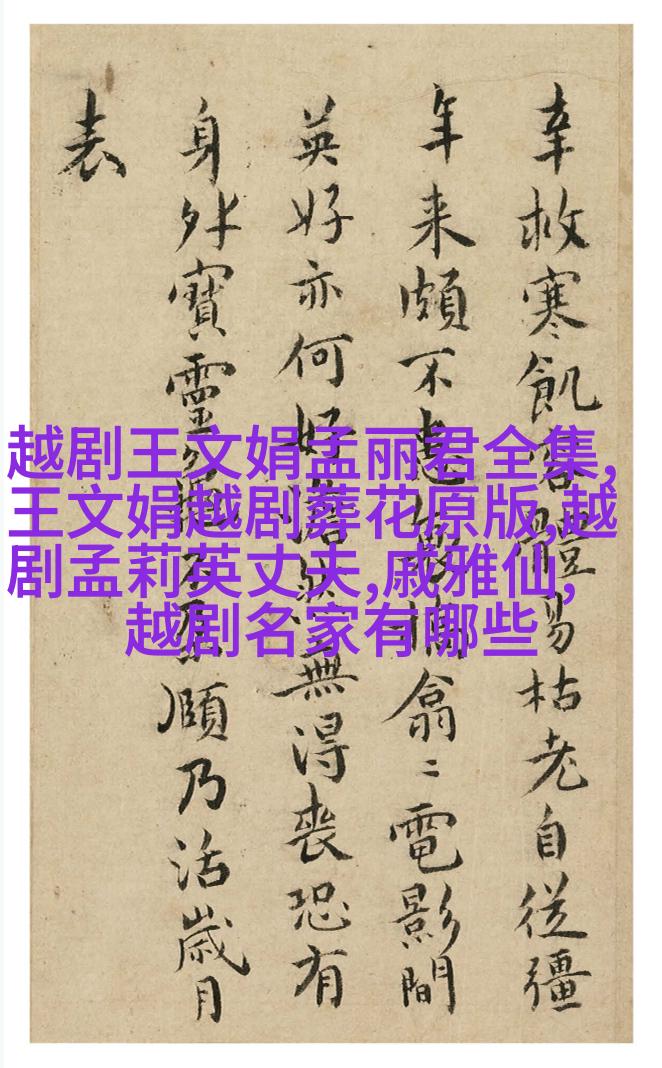 越剧王文娟孟丽君全集,
王文娟越剧葬花原版,越
剧孟莉英丈夫,戚雅仙,
越剧名家有哪些
幸救寒飢體易枯老自從彊
年来頗不翕〻電影間
英好亦何好然無得喪恐有
身外寶靈頤乃活歲月
表